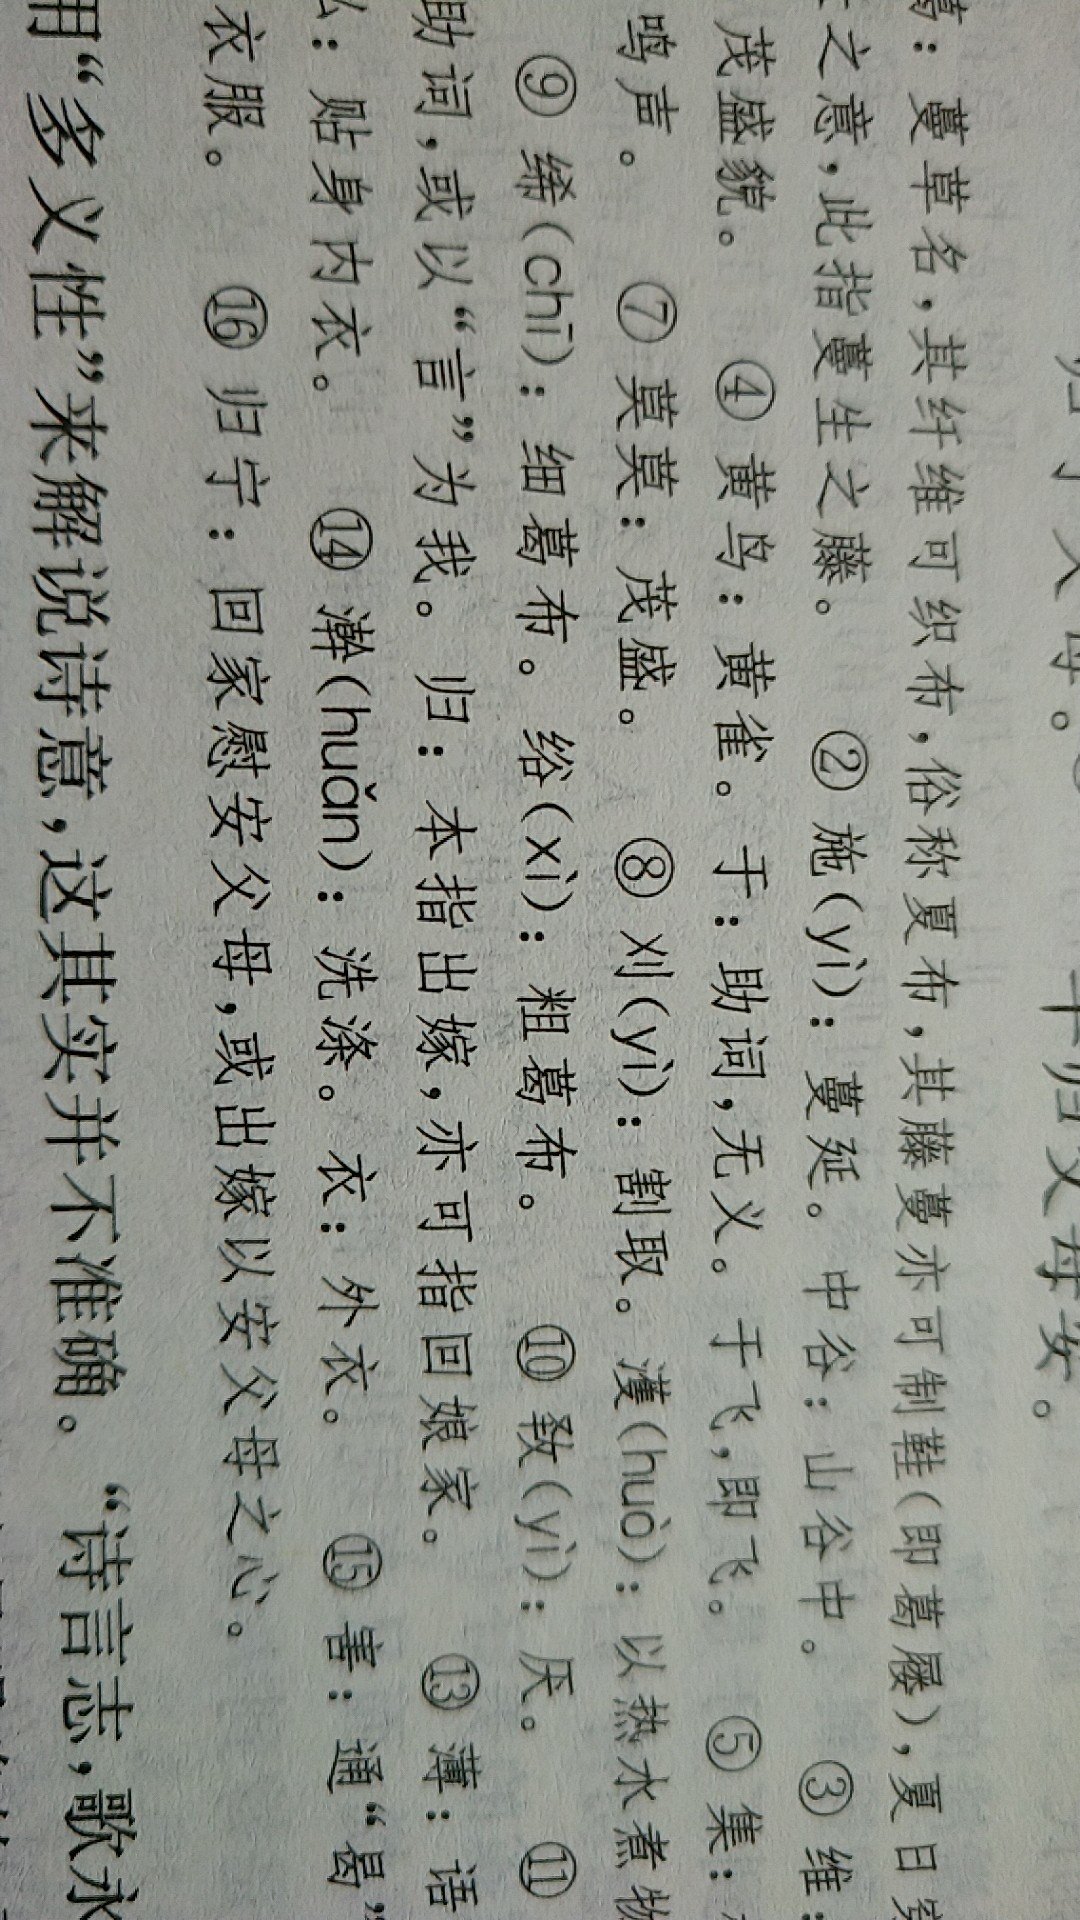 归宁父母。
子归父母安。
葛：蔓草名，其纤维可织布，俗称夏布，其藤蔓亦可制鞋（即葛屦），夏日
之意，此指蔓生之藤。 ② 施（yì）：蔓延。 中谷：山谷中。 ③ 维：
茂盛貌。 ④ 黄鸟：黄雀。于：助词，无义。于飞，即飞。 ⑤ 集：
鸣声。 ⑦ 莫莫：茂盛。 ⑧ 刈（yì）：割取。濩（huò）：以热水煮物
⑨ 絺（chī）：细葛布。 绤（xì）：粗葛布。 ⑩ 斁（yì）：厌。 ⑪
助词，或以“言”为我。 归：本指出嫁，亦可指回娘家。 ⑬ 薄：语
么：贴身内衣。 ⑭ 澣（huǎn）：洗涤。 衣：外衣。 ⑮ 害：通“曷”
衣服。 ⑯ 归宁：回家慰安父母，或出嫁以安父母之心。
用“多义性”来解说诗意，这其实并不准确。 “诗言志，歌永